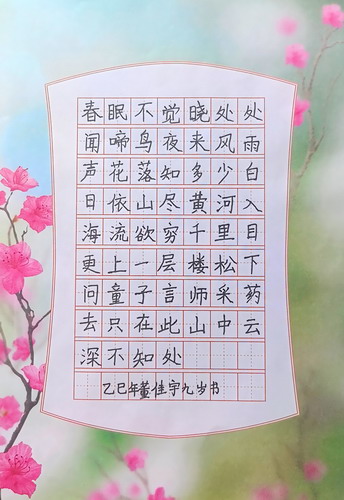 春眠不觉晓处处
闻啼鸟夜来风雨
声花落知多少白
日依山尽黄河入
海流欲穷千里目
更上一层楼松下
问童子言师采药
去只在此山中云
深不知处
乙巳年董佳宇九岁书